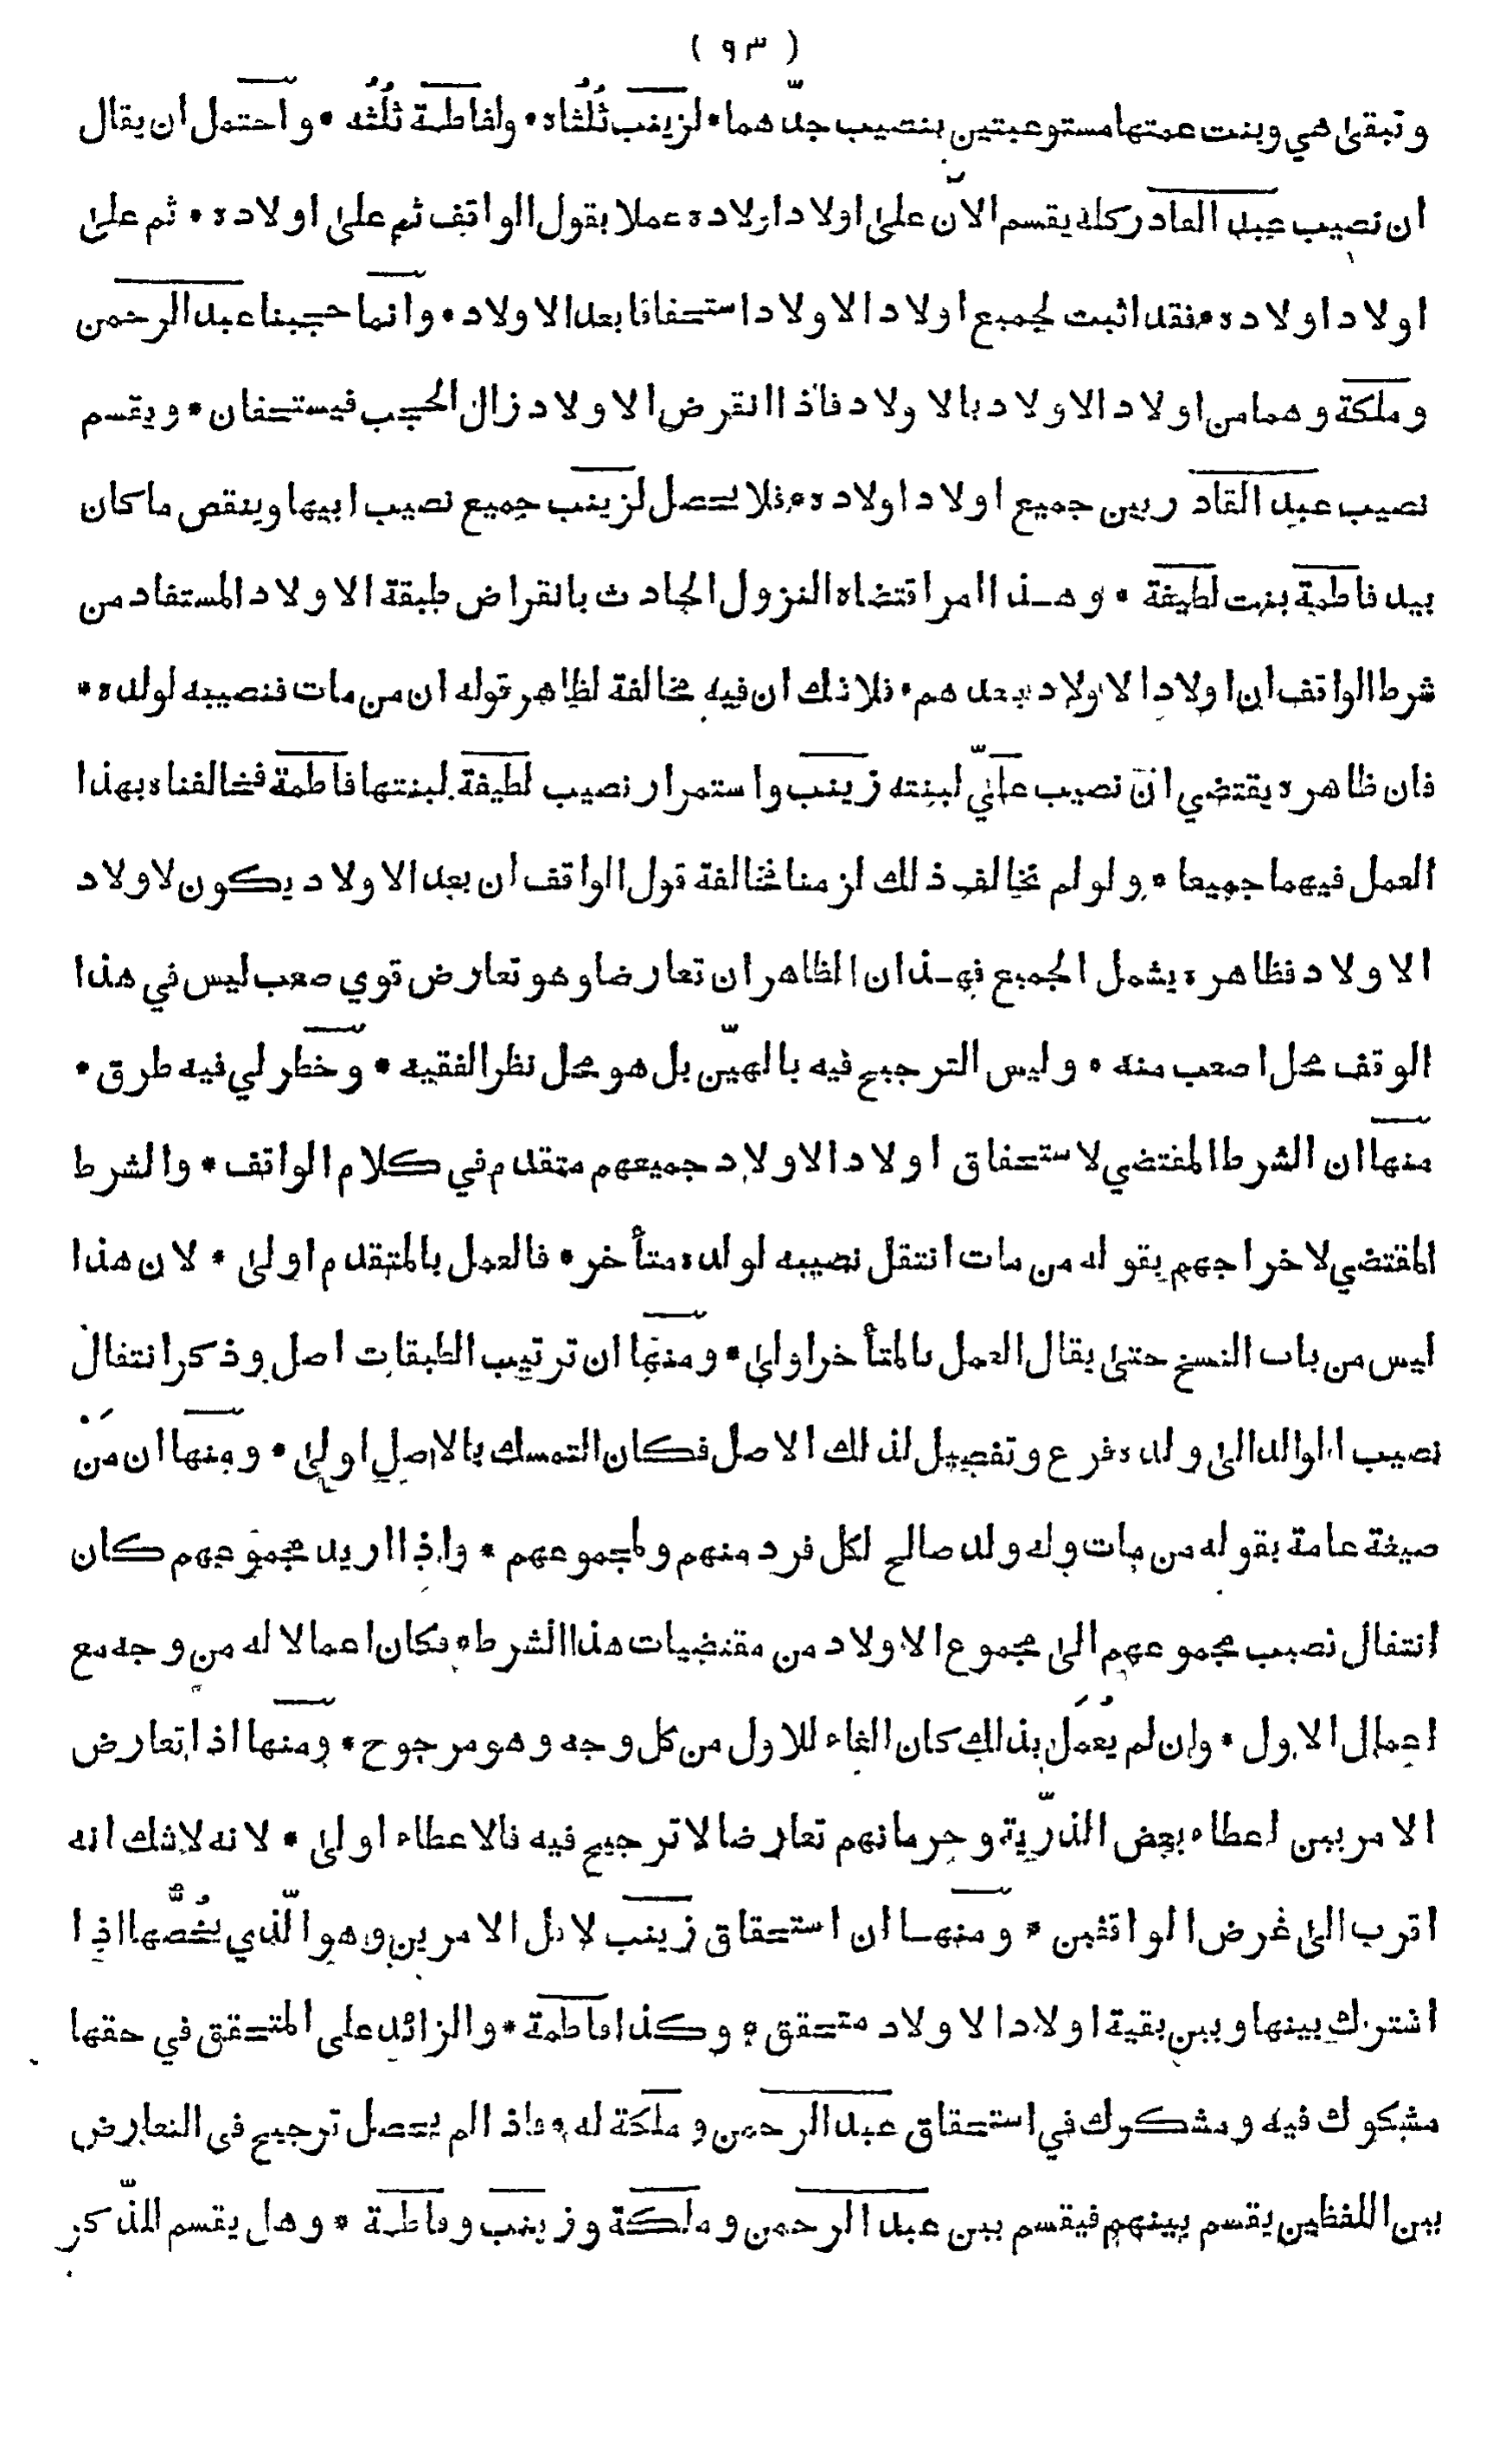 ( ٩٣ )
و تبقى هي و بنت عمتها مستوعبتين بنصيب جدّهما * لزينب ثُلثاه * ولفاطمة ثُلُثه * و احتمل ان يقال
ان نصيب عبد القادر كله يقسم الآن على اولاد اولاده عملا بقول الواقف ثم على اولاده * ثم على
اولاد اولاده * فقد اثبت لجميع اولاد الاولاد استحقاقا بعد الاولاد * وانما حجبنا عبد الرحمن
و ملكة و هما من اولاد الاولاد بالاولاد فاذا انقرض الاولاد زال الحجب فيستحقان * و يقسم
نصيب عبد القادر بين جميع اولاد اولاده * فلا يحصل لزينب جميع نصيب ابيها وينقص ما كان
بيد فاطمة بنت لطيفة * و هذا امر اقتضاه النزول الحادث بانقراض طبقة الاولاد المستفاد من
شرط الواقف ان اولاد الاولاد بعدهم * فلا شك ان فيه مخالفة لظاهر قوله ان من مات فنصيبه لولده *
فان ظاهره يقتضي انّ نصيب عليّ لبنته زينب واستمرار نصيب لطيفة لبنتها فاطمة فخالفناه بهذا
العمل فيهما جميعا * و لو لم نخالف ذلك لزمنا مخالفة قول الواقف ان بعد الاولاد يكون لاولاد
الاولاد فظاهره يشمل الجميع فهذان الظاهران تعارضا وهو تعارض قوي صعب ليس في هذا
الوقف محل اصعب منه * و ليس الترجيح فيه بالهيّن بل هو محل نظر الفقيه * و خطر لي فيه طرق *
منها ان الشرط المقتضي لاستحقاق اولاد الاولاد جميعهم متقدم في كلام الواقف * والشرط
المقتضي لاخراجهم بقوله من مات انتقل نصيبه لولده متأخر * فالعمل بالمتقدم اولى * لان هذا
ليس من باب النسخ حتى يقال العمل بالمتأخر اولى * و منها ان ترتيب الطبقات اصل و ذكر انتقال
نصيب الوالد الى ولده فرع و تفصيل لذلك الاصل فكان التمسك بالاصل اولى * و منها ان مَنْ
صيغة عامة بقوله من مات وله ولد صالح لكل فرد منهم ولمجموعهم * واذا اريد مجموعهم كان
انتقال نصيب مجموعهم الى مجموع الاولاد من مقتضيات هذا الشرط * فكان اعمالا له من وجه مع
اعمال الاول * وان لم يُعمَل بذلك كان الغاء للاول من كل وجه و هو مرجوح * ومنها اذا تعارض
الامر بين اعطاء بعض الذرّية و حرمانهم تعارضا لا ترجيح فيه فالاعطاء اولى * لانه لا شك انه
اقرب الى غرض الواقفين * و منها ان استحقاق زينب لاقل الامرين وهو الّذي يخُصّها اذا
اشترك بينها و بين بقية اولاد الاولاد متحقق * و كذا فاطمة * و الزائد على المتحقق في حقها
مشكوك فيه و مشكوك في استحقاق عبد الرحمن و ملكة له * فاذا لم يحصل ترجيح في التعارض
بين اللفظين يقسم بينهم فيقسم بين عبد الرحمن و ملكة و زينب و فاطمة * و هل يقسم للذّكر